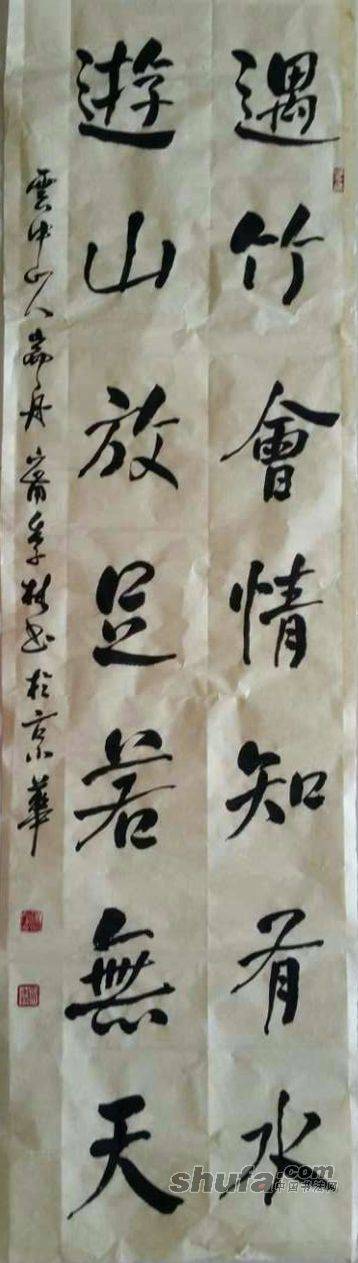 遇竹會情知有水
遊山放足若無天
雲中山人嵩丹齋李林书於京華
shufa.com
中国书法网